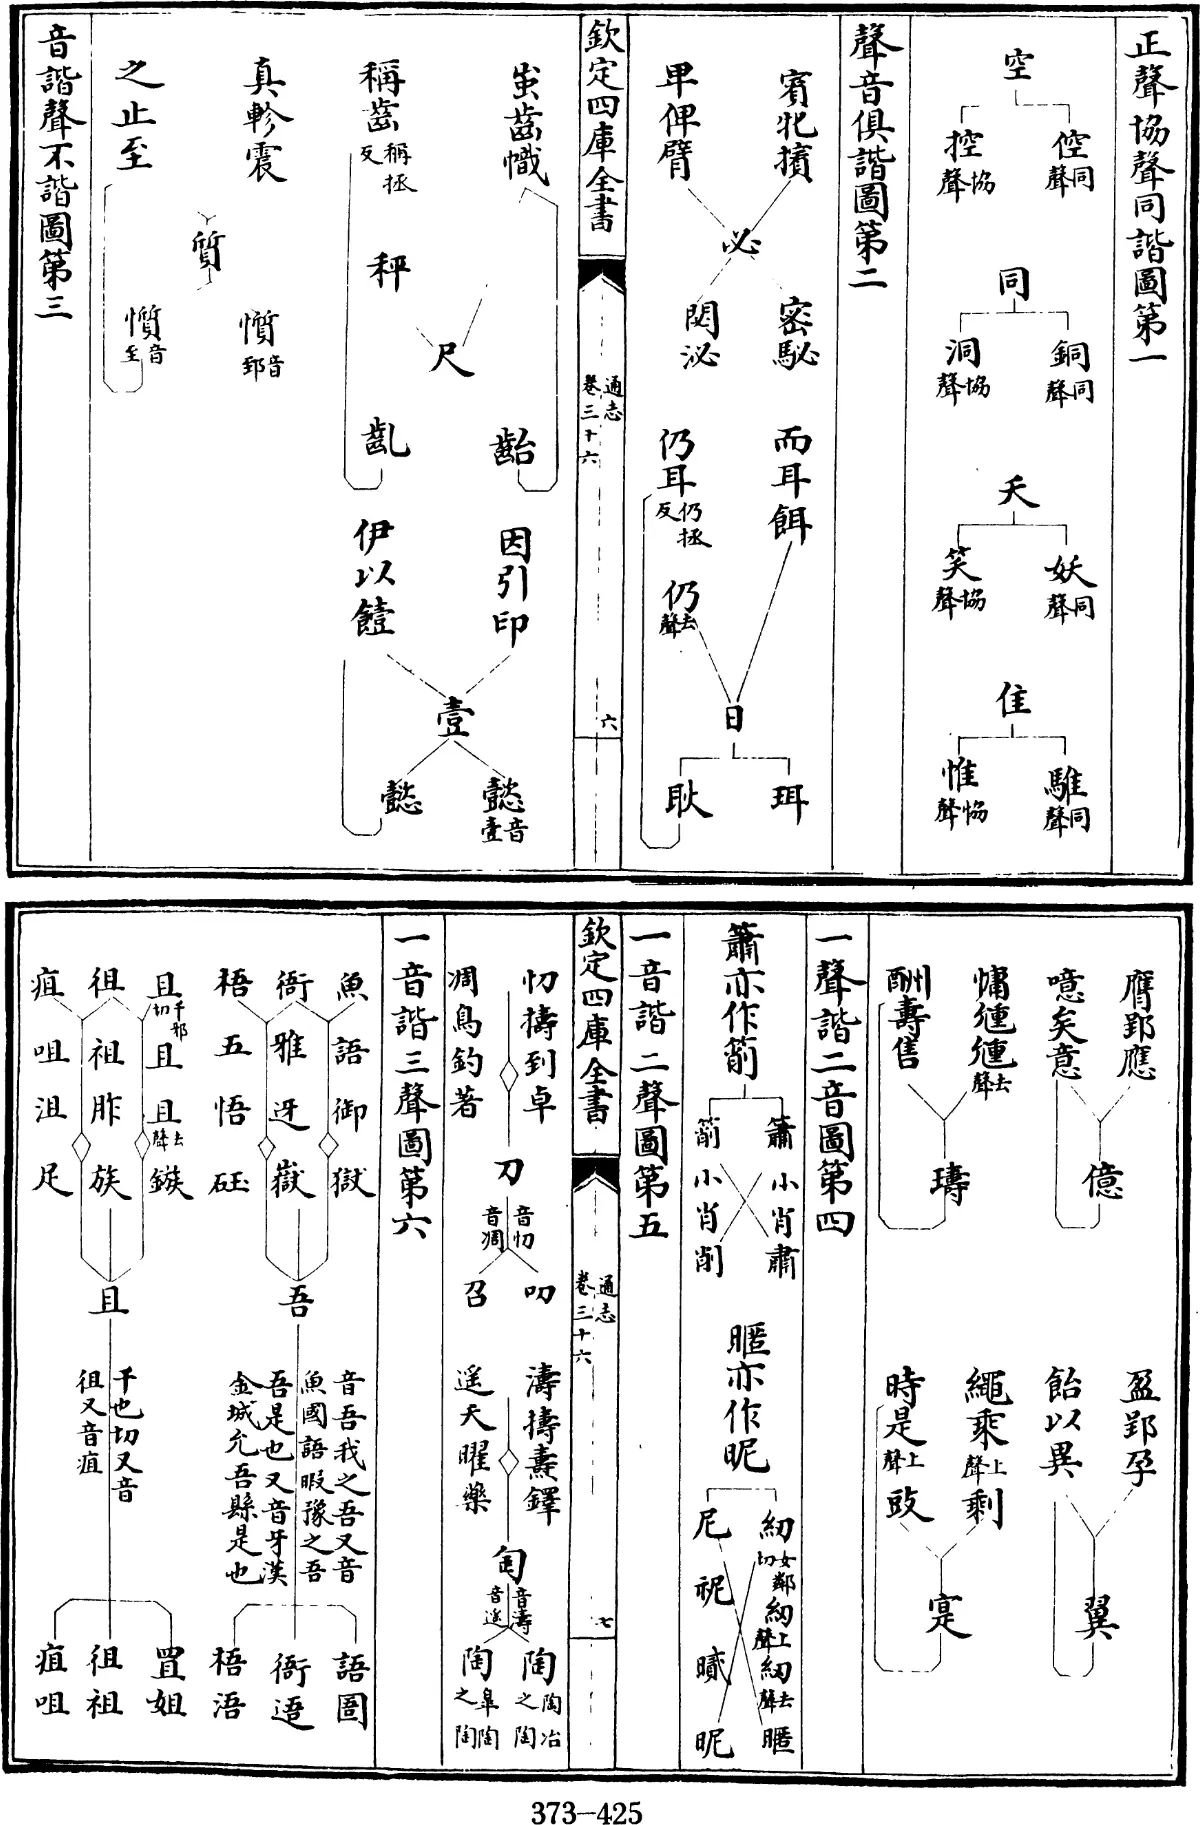 正聲協聲同諧圖第一
空
倥同聲
控協聲
同
銅同聲
洞協聲
夭
妖同聲
笑協聲
隹
騅同聲
惟協聲
聲音俱諧圖第二
賓牝擯
卑俾臂
必
密駜
閟泌
而耳餌
仍耳仍拯反
仍去聲
日
珥
耴
欽定四庫全書
通志
卷三十六
六
蚩齒幟
稱齒稱拯反
秤
尺
齝
齓
因引印
伊以饐
壹
懿音壹
懿
真軫震
之止至
質
懫音郅
懫音至
音諧聲不諧圖第三
膺郢應
噫矣意
億
慵緟緟去聲
酬壽售
璹
盈郢孕
飴以異
翼
繩乘上聲剩
時是上聲豉
寔
一聲諧二音圖第四
簫亦作箾
簫小肖肅
箾小肖削
暱亦作昵
紉女鄰切紉上聲紉去聲暱
尼祝膩昵
一音諧二聲圖第五
欽定四庫全書
通志
卷三十六
七
忉擣到卓
凋鳥釣著
刀
音忉
音凋
叨
召
濤擣燾鐸
遥夭曜樂
匋
音濤
音遥
陶陶冶之陶
陶皋陶之陶
一音諧三聲圖第六
魚語御獄
衙雅迓嶽
梧五悟砡
吾
音吾我之吾又音
魚國語暇豫之吾
吾是也又音牙漢
金城允吾縣是也
語圄
衙逜
梧浯
且千邪切且且去聲鏃
徂祖胙族
疽咀沮足
且
千也切又音
徂又音疽
罝姐
徂祖
疽咀
373-425